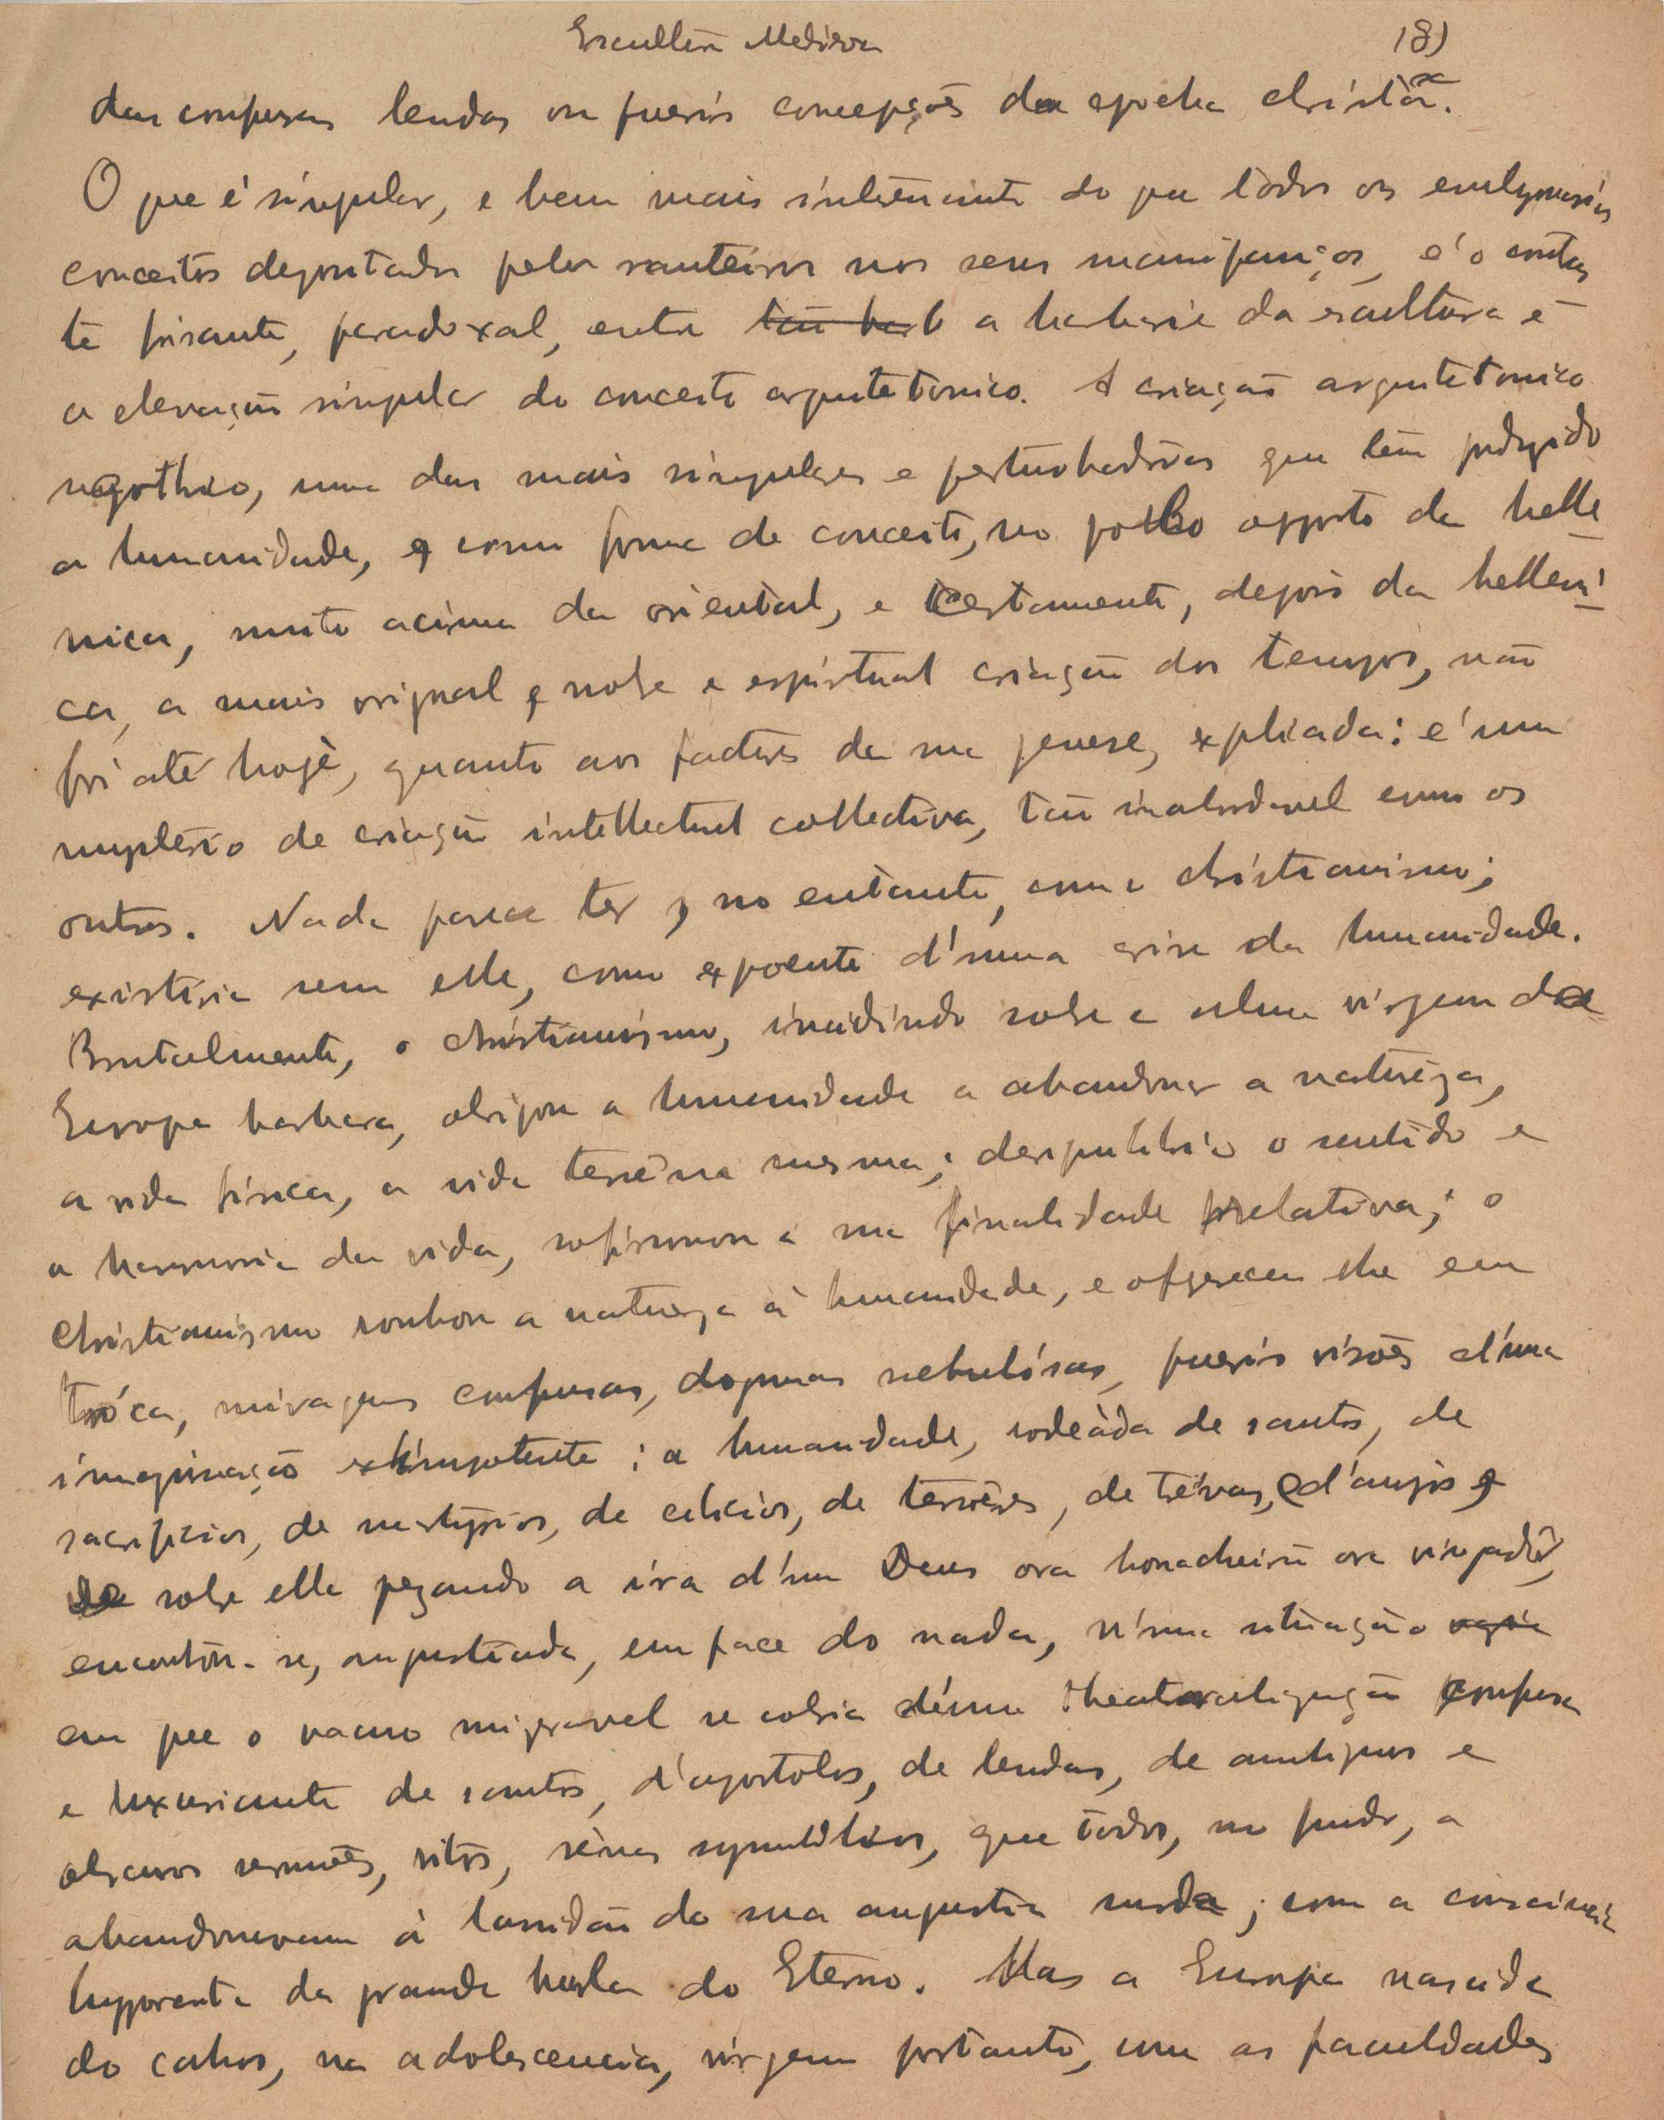 Escultura Medieva 18)
das confusas lendas ou pueris concepções da epocha christã.
O que é singular, e bem mais interessante do que todos os
conceitos deportados pelos santeiros nos seus manipanços, é o contras
te frisante, paradoxal, entre tão barb a barbarie da escultura e
a elevação singular do conceito arquitetonico. A criação arquitetonica
ogothico, uma das mais singulares e perturbadoras que tem produzido
a humanidade, e como forma de conceito, no polo opposto da helle
nica, muito acima da oriental, e certamente, depois da helleni
ca, a mais original e nobre e espiritual criação dos tempos, não
foi até hoje, quanto aos factores da sua genese, explicada: é um
mysterio de criação intellectual collectiva, tão inabordavel como os
outros. Nada parece ter, no entanto, com o christianismo;
existiria sem elle, como expoente d'uma crise da humanidade.
Brutalmente, o christianismo, incidindo sobre a alma virgem da
Europa barbara, obrigou a humanidade a abandonar a natureza,
a vida fisica, a vida terrena mesma; desiquilibrio o sentido e
a harmonia da vida, a sua finalidade relativa; o
christianismo roubou a natureza á humanidade, e offereceu lhe em
tróca, miragens confusas, dogmas nebulósas, pueris visões d'uma
imaginação impotente: a humanidade, rodeáda de santos, de
sacrificios, de martyrios, de cilicios, de terrores, de trévas, e d'anjos e
sobre elle pezando a ira d'um Deus ora bonacheirão ora vingadôr,
encontra-se, angustiada, em face do nada, n'uma situação vazia
em que o vacuo mizeravel se cobria d'uma theatralização confusa
e luxuriante de santos, d'apostolos, de lendas, de ambiguos e
obscuros sermões, ritos, sênas symbolicas, que todos, no fundo, a
abandonavam á lassidão da sua angustia surda; com a consciencia
da grande burla do Eterno. Mas a Europa nascida
do cahos, na adolescencia, virgem portanto, com as faculdades